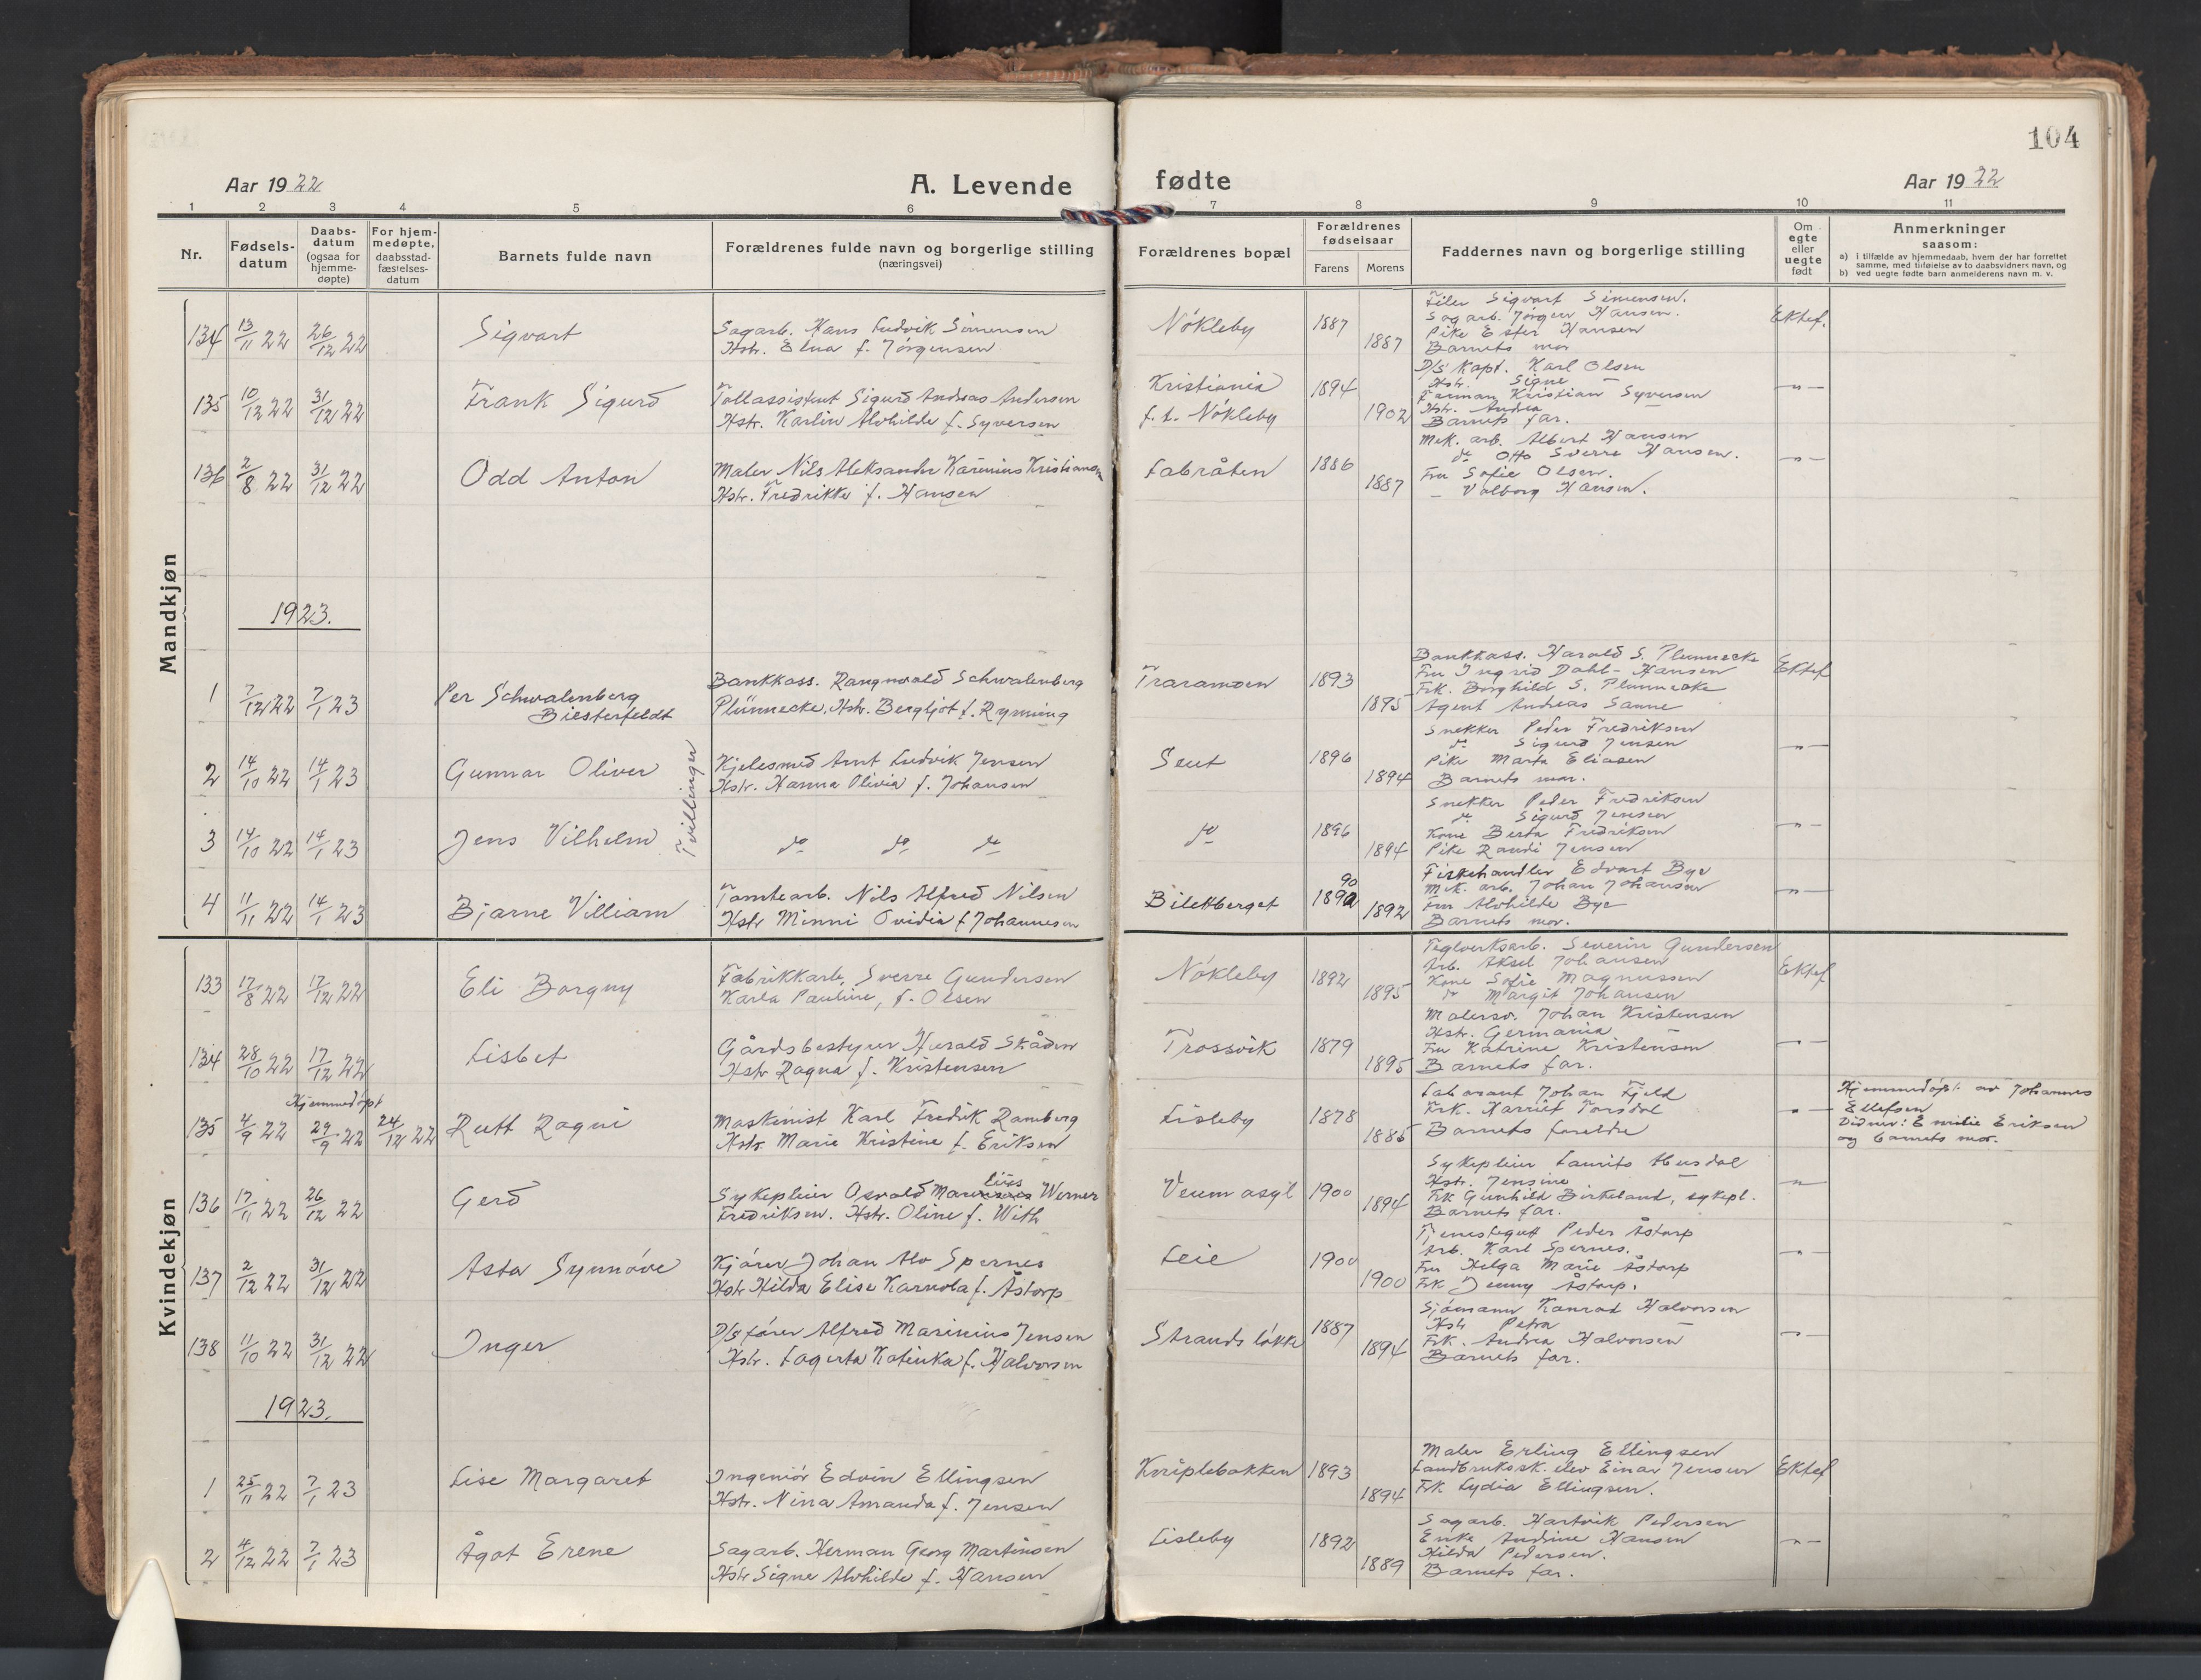 104
Aar 1922
A. Levende fødte
Aar 1922
1 2 3 4 5 6 7 8 9 10 11
Nr.
Fødsels-datum
Daabs-datum (ogsaa for hjemme-døpte)
For hjem-medøpte, daabsstad-fæstelses-datum
Barnets fulde navn
Forældrenes fulde navn og borgerlige stilling (næringsvei)
Forældrenes bopæl
Forældrenes fødselsaar
Farens
Morens
Faddernes navn og borgerlige stilling
Om egte eller uegte født
Anmerkninger saasom:
a) i tilfælde av hjemmedaab, hvem der har forrettet samme, med tilføielse av to daabsvidners navn, og
b) ved uegte fødte barn anmelderens navn m. v.
Mandkjøn
134 13/11 22 26/12 22 Sigvart
Sagarb. Hans Ludvik Simensen
Hstr. Elna f. Jørgensen
Nökleby 1887 1887
Filer Sigvart Simensen.
Sagarb. Jørgen Hansen.
Pike Ester Hansen
Barnets mor
Ektef.
135 10/12 22 31/12 22 Frank Sigurd
Tollassistent Sigurd Andreas Andersen
Hstr. Karlin Alvhilde f. Syversen
Kristiania
f. t. Nökleby 1894 1902
D/S Kapt. Karl Olsen
Hstr. Signe —
Formann Kristian Syversen
Hstr. Andrea —
Barnets far.
— " —
136 2/8 22 31/12 22 Odd Anton
Maler Nils Aleksander Karenius Kristiansen
Hstr. Fredrikke f. Hansen
Labråten 1886 1887
Mek. arb. Albert Hansen
do Otto Sverre Hansen.
Fru Sofie Olsen.
— Valborg Hansen.
— " —
1923.
1 7/12 22 7/1 23 Per Schwalenberg
Biesterfeldt
Bankkass. Rangnvald Schwalenberg
Plünnecke, Hstr. Bergljot f. Rynning
Traramoen 1893 1895
Bankkass. Harald S. Plunnecke
Fru Ingrid Dahl-Hansen
Frk. Borghild S. Plunnecke
Agent Andreas Sanne
Ektef
2 14/10 22 14/1 23 Gunnar Oliver
Tvillinger
Kjelesmed Arnt Ludvik Jensen
Hstr. Hanna Olivia f. Johansen
Seut 1896 1894
Snekker Peder Fredriksen
do Sigurd Jensen
Pike Marta Eliasen
Barnets mor.
— " —
3 14/10 22 14/1 23 Jens Vilhelm
do do do
do 1896 1894
Snekker Peder Fredriksen
do Sigurd Jensen
Kone Berta Fredriksen
Pike Randi Jensen
— " —
4 11/11 22 14/1 23 Bjarne Villiam
Tomtearb. Nils Alfred Nilsen
Hstr Minni Ovidia f Johannesen
Bilettberget 90 1892
Fiskehandler Edvart Bye
Mek. arb. Johan Johansen
Fru Alvhilde Bye
Barnets mor.
— " —
Kvindekjøn
133 17/8 22 17/12 22 Eli Borgny
Fabrikkarb, Sverre Gundersen
Karla Pauline, f. Olsen
Nökleby 1892 1895
Teglverksarb. Severin Gundersen
Arb. Aksel Johansen
Kone Sofie Magnussen
do Margit Johansen
Ektef
134 28/10 22 17/12 22 Lisbet
Gårdsbestyrer Harald Skåden
Hstr Ragna f. Kristensen
Trossvik 1879 1895
Malersv. Johan Kristensen
Hstr. Germania —
Fru Katrine Kristensen
Barnets far.
— " —
Hjemmedöpt
135 4/9 22 29/9 22 24/12 22 Rutt Ragni
Maskinist Karl Fredrik Ramberg
Hstr Marie Kristine f. Eriksen
Lisleby 1878 1885
Laborant Johan Fjeld
Frk. Harriet Torsdal
Barnets foreldre
— " —
Hjemmedöpt av Johannes
Ellefsen
Vidner: Emilie Eriksen
og barnets mor.
136 17/11 22 26/12 22 Gerd
Sykepleier Osvald Marinius Werner
Fredriksen. Hstr. Oline f. With
Veum asyl 1900 1894
Sykepleier Laurits Husdal
Hstr. Jensine —
Frk Gunhild Birkeland, sykepl.
Barnets far.
— " —
137 2/12 22 31/12 22 Asta Synnöve
Kjörer Johan Alv Spernes
Hstr Hilda Elise Karnola f. Åstorp
Leie 1900 1900
Tjenestegutt Peder Åstorp
Arb. Karl Spernes.
Fru Helga Marie Åstorp
Frk Jenny Åstorp.
— " —
138 11/10 22 31/12 22 Inger
D/S förer Alfred Marinius Jensen
Hstr. Lagerta Katinka f. Halvorsen
Strandslökke 1887 1894
Sjömann Konrad Halvorsen
Hstr Petra —
Frk. Andrea Halvorsen
Barnets far.
— " —
1923.
1 25/11 22 7/1 23 Lise Margaret
Ingeniör Edvin Ellingsen
Hstr. Nina Amanda f. Jensen
Kviplebakken 1893 1894
Maler Erling Ellingsen
Landbruksk. elev Einar Jensen
Frk Lydia Ellingsen.
Ektef
2 4/12 22 7/1 23 Ågot Erene
Sagarb. Herman Georg Martinsen
Hstr Signe Alvhilde f. Hansen
Lisleby 1892 1889
Sagarb. Hartvik Pedersen
Enke Andrine Hansen
Hilda Pedersen.
Barnets far.
— " —